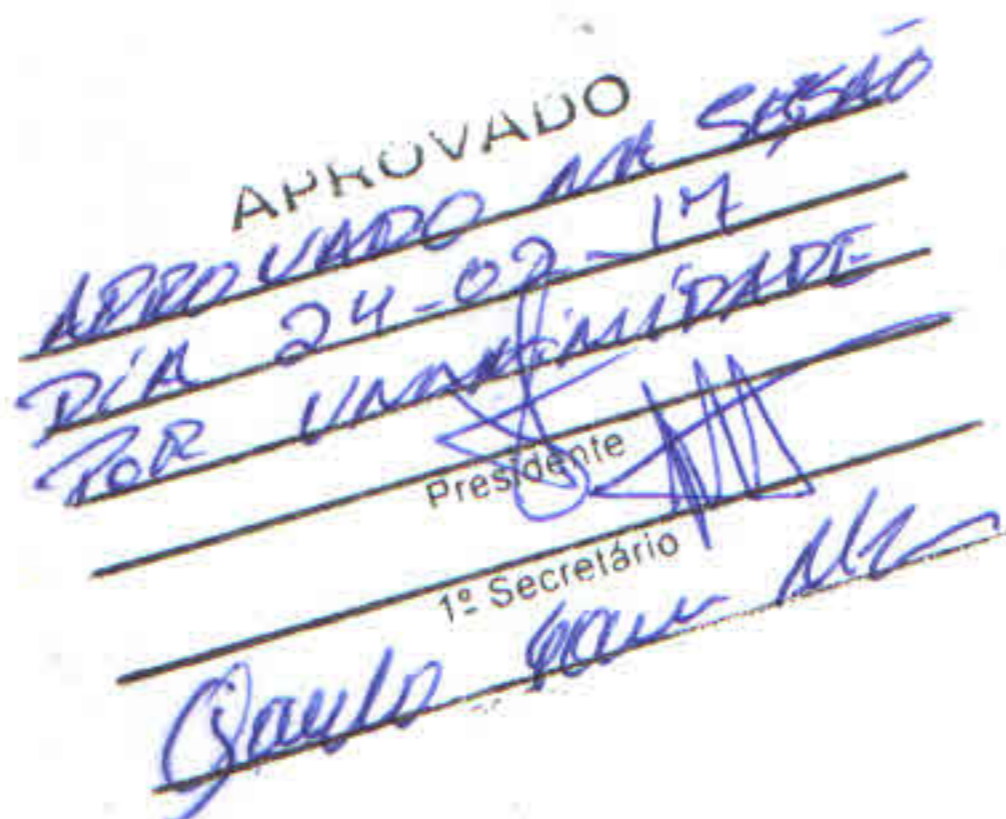 APROVADO
APROVADO NA SESSÃO
DIA 24-02-17
POR UNANIMIDADE
Presidente
1º Secretário